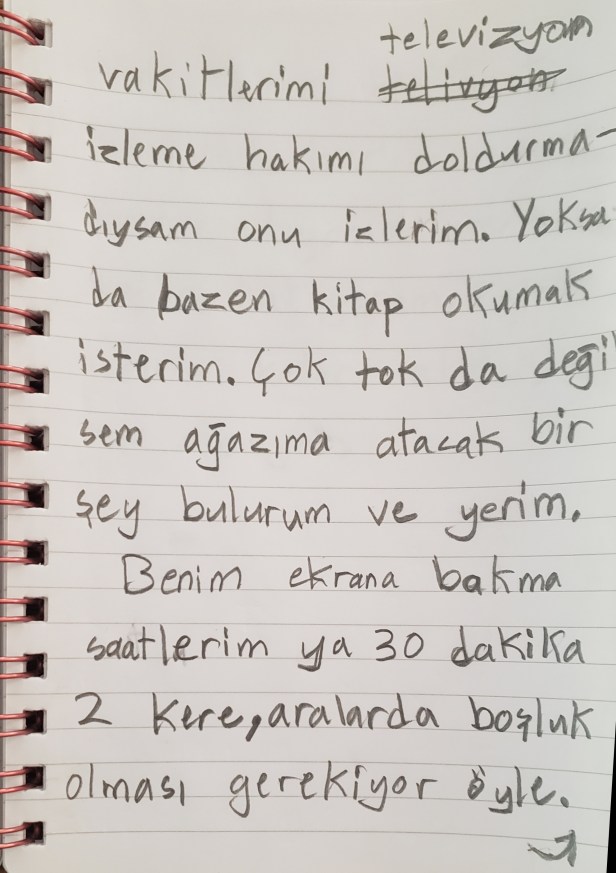 televizyon
vakitlerimi telivyon
izleme hakımı doldurma-
dıysam onu izlerim. Yoksa
da bazen kitap okumak
isterim. Çok tok da değil
sem ağazıma atacak bir
şey bulurum ve yerim.
Benim ekrana bakma
saatlerim ya 30 dakika
2 kere, aralarda boşluk
olması gerekiyor öyle.